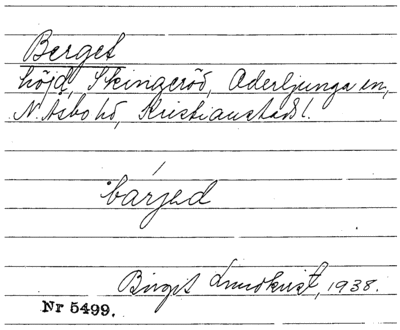 Berget
höjd, Skingeröd, Oderljunga sn,
N. Åsbo hd, Kristianstads l.
bárjed
Birgit Lundkvist, 1938.
Nr 5499.